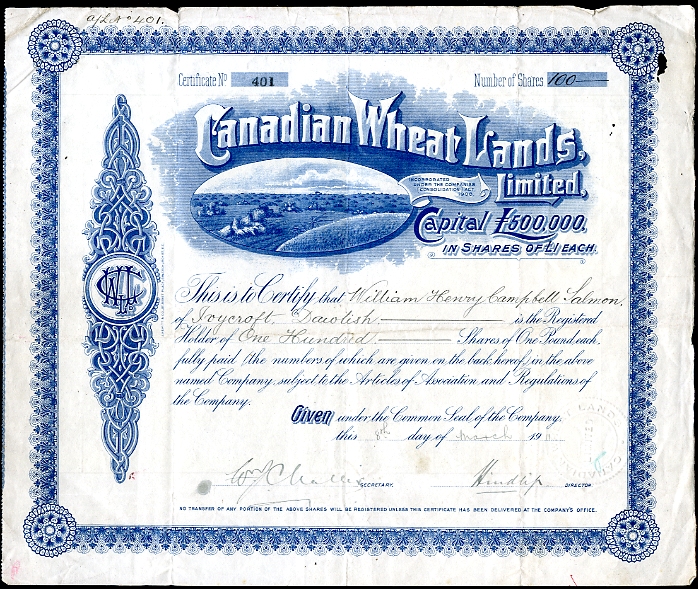 a/c No 401.
Certificate No 401
Number of Shares 100
Canadian Wheat Lands,
Limited,
INCORPORATED
UNDER THE COMPANIES
CONSOLIDATION ACT
1908.
Capital £500,000,
IN SHARES OF £1 EACH.
CWL
This is to Certify that William Henry Campbell Salmon
of Ivycroft Dawlish is the Registered
Holder of One Hundred Shares of One Pound each,
fully paid (the numbers of which are given on the back hereof) in the above
named Company, subject to the Articles of Association and Regulations of
the Company.
Given under the Common Seal of the Company,
this 8th day of March 191
SECRETARY. Hindlip DIRECTOR.
NO TRANSFER OF ANY PORTION OF THE ABOVE SHARES WILL BE REGISTERED UNLESS THIS CERTIFICATE HAS BEEN DELIVERED AT THE COMPANY'S OFFICE.